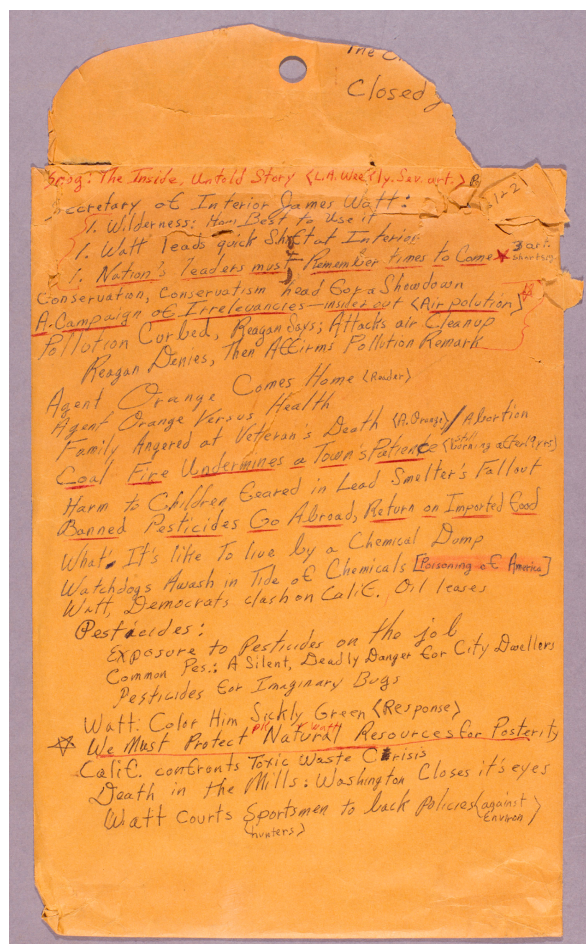 Closed
Smog: The Inside, Untold Story (L.A. Weekly. Sev. art.)
1-2
Secretary of Interior James Watt:
1. Wilderness: How Best to Use it
1. Watt leads quick Shift at Interior
1. Nation's leaders must Remember times to Come
3 art.
Conservation, Conservatism head for a Showdown
A Campaign of Irrelevancies—insider out (Air polution)
Pollution Curbed, Reagan Says; Attacks air Cleanup
Reagan Denies, Then Affirms Pollution Remark
Agent Orange Comes Home (Reader)
Agent Orange Versus Health
Family Angered at Veteran's Death (A. Orange) / Abortion
Coal Fire Undermines a Town's Patience (still burning after 19 yrs)
Harm to Children Feared in Lead Smelter's Fallout
Banned Pesticides Go Abroad, Return on Imported Food
What It's like To live by a Chemical Dump
Watchdogs Awash in Tide of Chemicals [Poisoning of America]
Watt, Democrats clash on Calif. Oil leases
Pesticides:
Exposure to Pesticides on the job
Common Pes.: A Silent, Deadly Danger for City Dwellers
Pesticides for Imaginary Bugs
Watt: Color Him Sickly Green (Response)
pic of Watt
We Must Protect Natural Resources for Posterity
Calif. confronts Toxic Waste Crisis
Death in the Mills: Washington Closes it's eyes
Watt Courts Sportsmen to back Policies (against Environ)
(hunters)